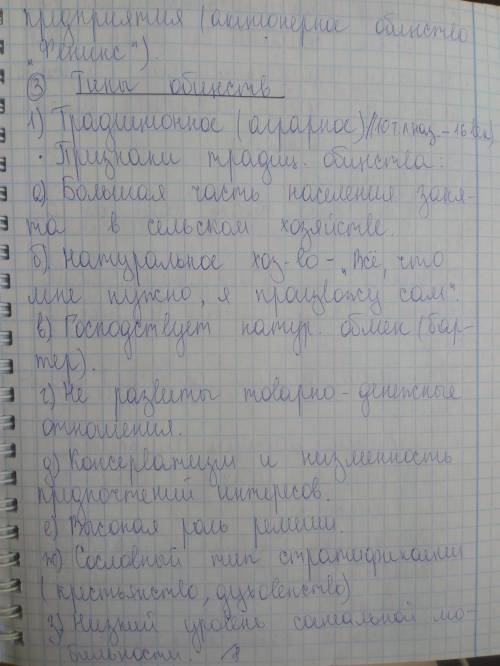 предприятия (акционерное общество
"Феникс").
③ Типы обществ
1) Традиционное (аграрное)//10 т.л наз – 16 в.)
· Признаки традиц. общества:
а) Большая часть населения заня-
та в сельском хозяйстве.
б) Натуральное хоз-во – „Всё, что
мне нужно, я произвожу сам".
в) Господствует натур. обмен (бар-
тер).
г) Не развиты товарно-денежные
отношения.
д) Консерватизм и низменность
предпочтений интересов.
е) Высокая роль религии.
ж) Сословный тип стратификации
(крестьянство, духовенство)
з) Низкий уровень социальной мо-
бильности.